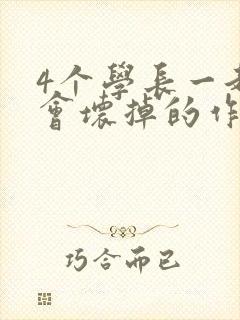 4个學長一
會壞掉的作
巧合而已